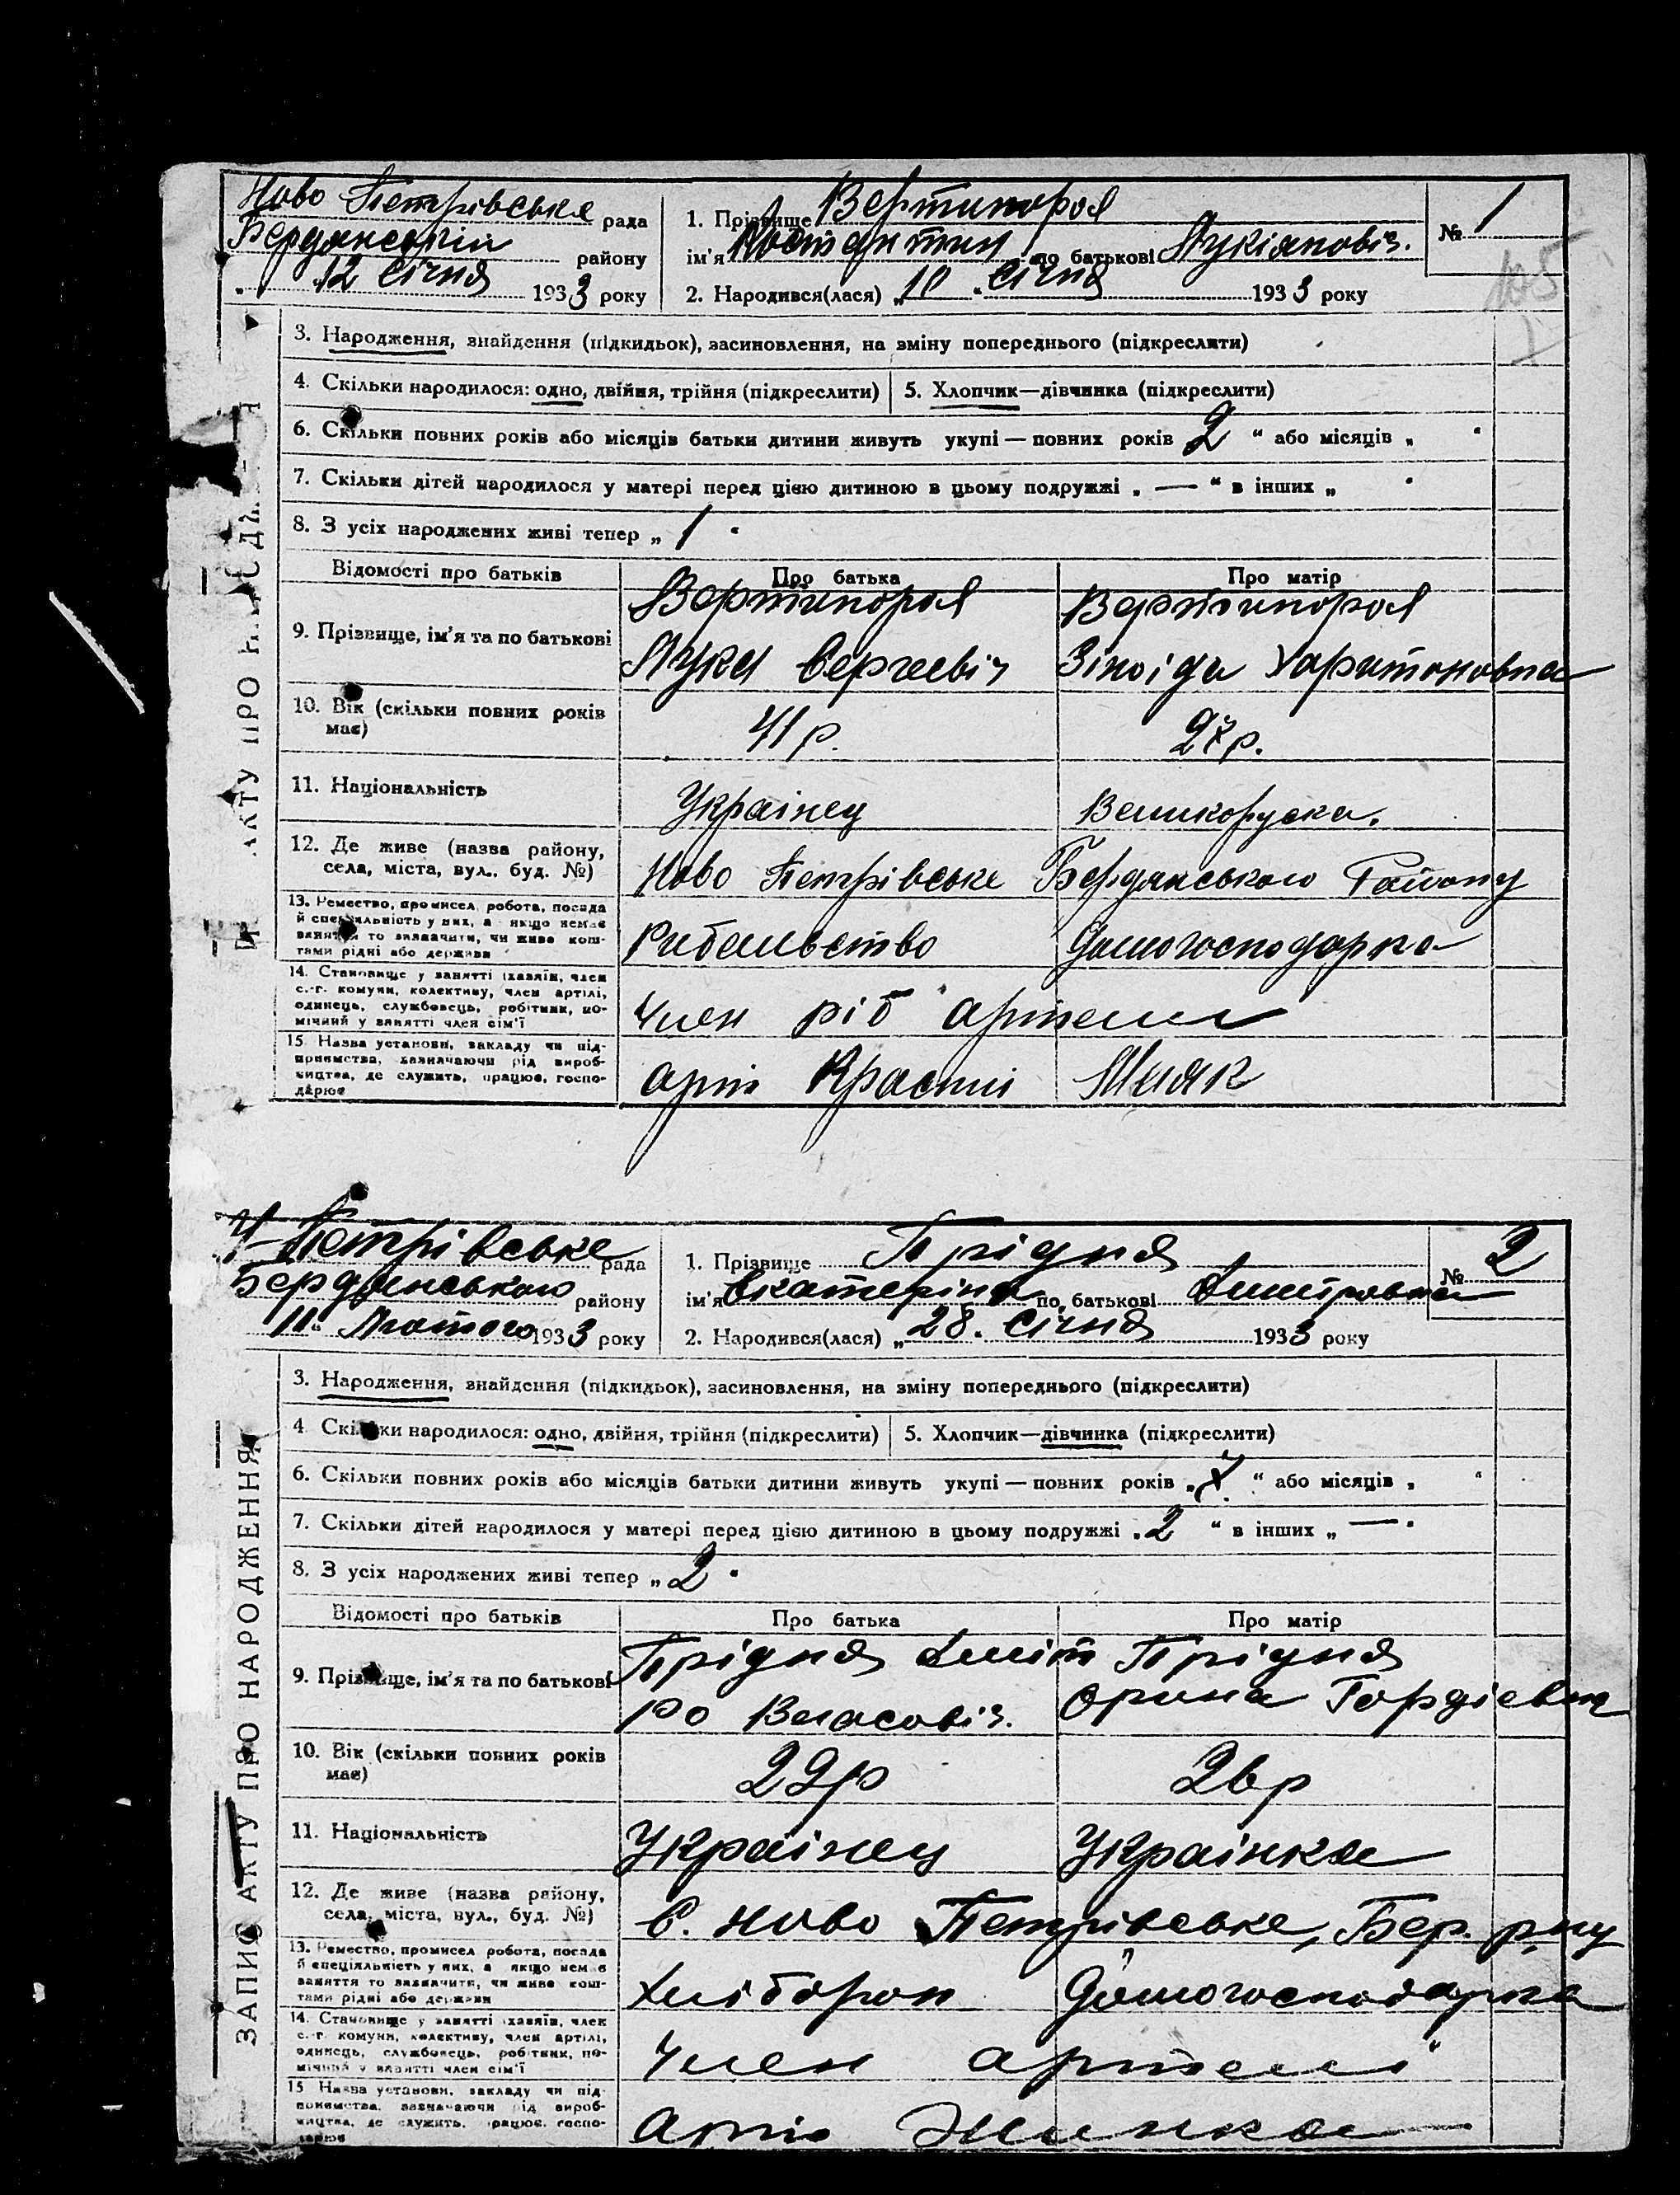 Ново Петрівська рада
Бердянський району
12 Січня 1933 року
1. Прізвище Вертипорох
ім'я Костантин по батькові Лукіяновіч.
2. Народився(лася) „10 " Січня 1933 року
№ 1
105
3. Народження, знайдення (підкидьок), засиновлення, на зміну попереднього (підкреслити)
4. Скільки народилося: одно, двійня, трійня (підкреслити) 5. Хлопчик—дівчинка (підкреслити)
6. Скільки повних років або місяців батьки дитини живуть укупі — повних років 2 " або місяців „ "
7. Скільки дітей народилося у матері перед цією дитиною в цьому подружжі „ — " в інших „ "
8. З усіх народжених живі тепер „ 1 "
Відомості про батьків Про батька Про матір
9. Прізвище, ім'я та по батькові Вертипорох Вертипорох
Лука Сергеевіч Зіноіда Харитоновна
10. Вік (скільки повних років має) 41 р. 27 р.
11. Національність Украінец Великоруска.
12. Де живе (назва району, села, міста, вул., буд. №) Ново Петрівське Бердянського Району
13. Ремество, промисел, робота, посада
й спеціяльність у них, а якщо немає
заняття то зазначити, чи живе кош-
тами рідні або держави
Рибальство Домогосподарка
14. Становище у занятті (хазяїн, член
с.-г. комуни, колективу, член артілі,
одинець, службовець, робітник, по-
мічний у занятті член сім'ї
Член ріб артели
15. Назва установи, закладу чи під-
приємства, зазначаючи рід вироб-
ництва, де служить, працює, госпо-
дарює
арт Красний Маяк
ЗАПИС АКТУ ПРО НАРОДЖЕННЯ
Н-Петрівське рада
Бердянського району
11" Лютого 1933 року
1. Прізвище Прідня
ім'я Екатеріна по батькові Дмитровна
2. Народився(лася) „28. Січня 1933 року
№ 2
3. Народження, знайдення (підкидьок), засиновлення, на зміну попереднього (підкреслити)
4. Скільки народилося: одно, двійня, трійня (підкреслити) 5. Хлопчик—дівчинка (підкреслити)
6. Скільки повних років або місяців батьки дитини живуть укупі — повних років „7 " або місяців „ "
7. Скільки дітей народилося у матері перед цією дитиною в цьому подружжі „2 " в інших „ — "
8. З усіх народжених живі тепер „ 2 "
Відомості про батьків Про батька Про матір
9. Прізвище, ім'я та по батькові Прідня Дміт Прідня
ро Власовіч. Орина Гордіевна
10. Вік (скільки повних років має) 29 р 26 р
11. Національність Украінец Украінка
12. Де живе (назва району, села, міста, вул., буд. №) с. Ново Петрівське, Бер. р-ну
13. Ремество, промисел робота, посада
й спеціяльність у них, а якщо немає
заняття то зазначити, чи живе кош-
тами рідні або держави
Хлібороп Домогосподарка
14. Становище у занятті (хазяїн, член
с.-г. комуни, колективу, член артілі,
одинець, службовець, робітник, по-
мічний у занятті член сім'ї
Член артелі
15 Назва установи, закладу чи під-
приємства, зазначаючи рід вироб-
ництва, де служить, працює, госпо-
дарює
Арт
ЗАПИС АКТУ ПРО НАРОДЖЕННЯ